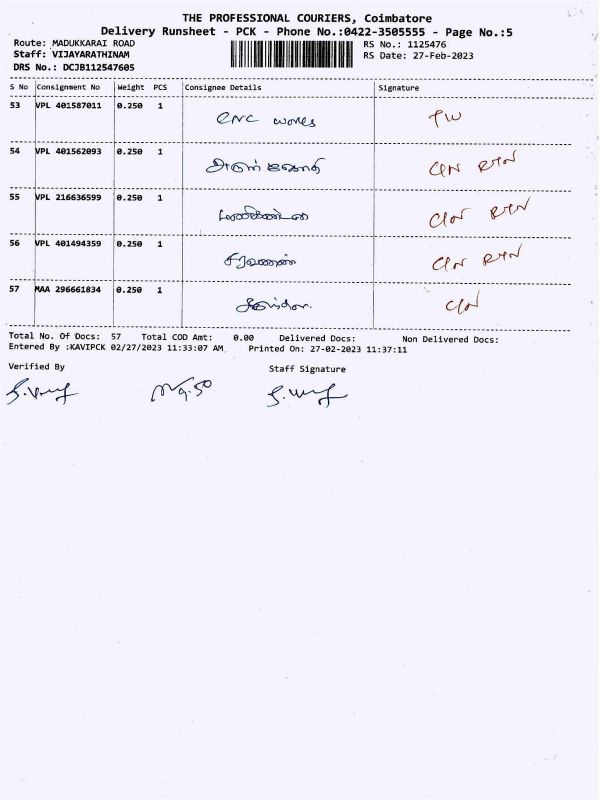 THE PROFESSIONAL COURIERS, Coimbatore
Delivery Runsheet - PCK - Phone No.:0422-3505555 - Page No.:5
Route: MADUKKARAI ROAD RS No.: 1125476
Staff: VIJAYARATHINAM RS Date: 27-Feb-2023
DRS No.: DCJB112547605
S No Consignment No Weight PCS Consignee Details Signature
53 VPL 401587011 0.250 1 CNC works
54 VPL 401562093 0.250 1 C/N RTN
55 VPL 216636599 0.250 1 C/N RTN
56 VPL 401494359 0.250 1 சரவணன் C/N RTN
57 MAA 296661834 0.250 1 C/N
Total No. Of Docs: 57 Total COD Amt: 0.00 Delivered Docs: Non Delivered Docs:
Entered By :KAVIPCK 02/27/2023 11:33:07 AM Printed On: 27-02-2023 11:37:11
Verified By Staff Signature